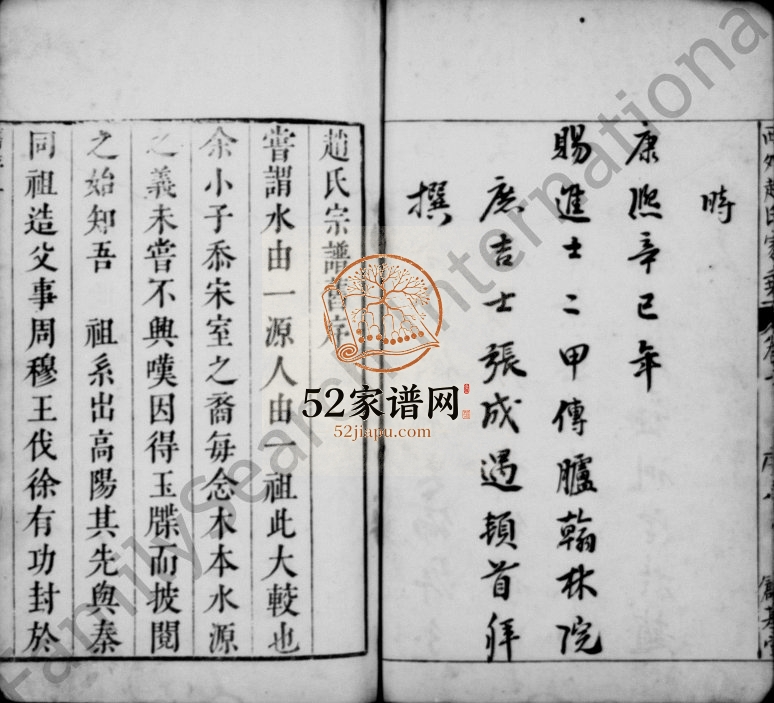 時
康熙辛巳年
賜進士二甲傳臚翰林院
庶吉士張成遇頓首拜
撰
趙氏宗譜舊序
嘗謂水由一源人由一祖此大較也
余小子忝宋室之裔每念木本水源
之義未嘗不興嘆因得玉牒而披閱
之始知吾 祖系出高陽其先與秦
同祖造父事周穆王伐徐有功封於
52家谱网
52jiapu.com
FamilySearch International